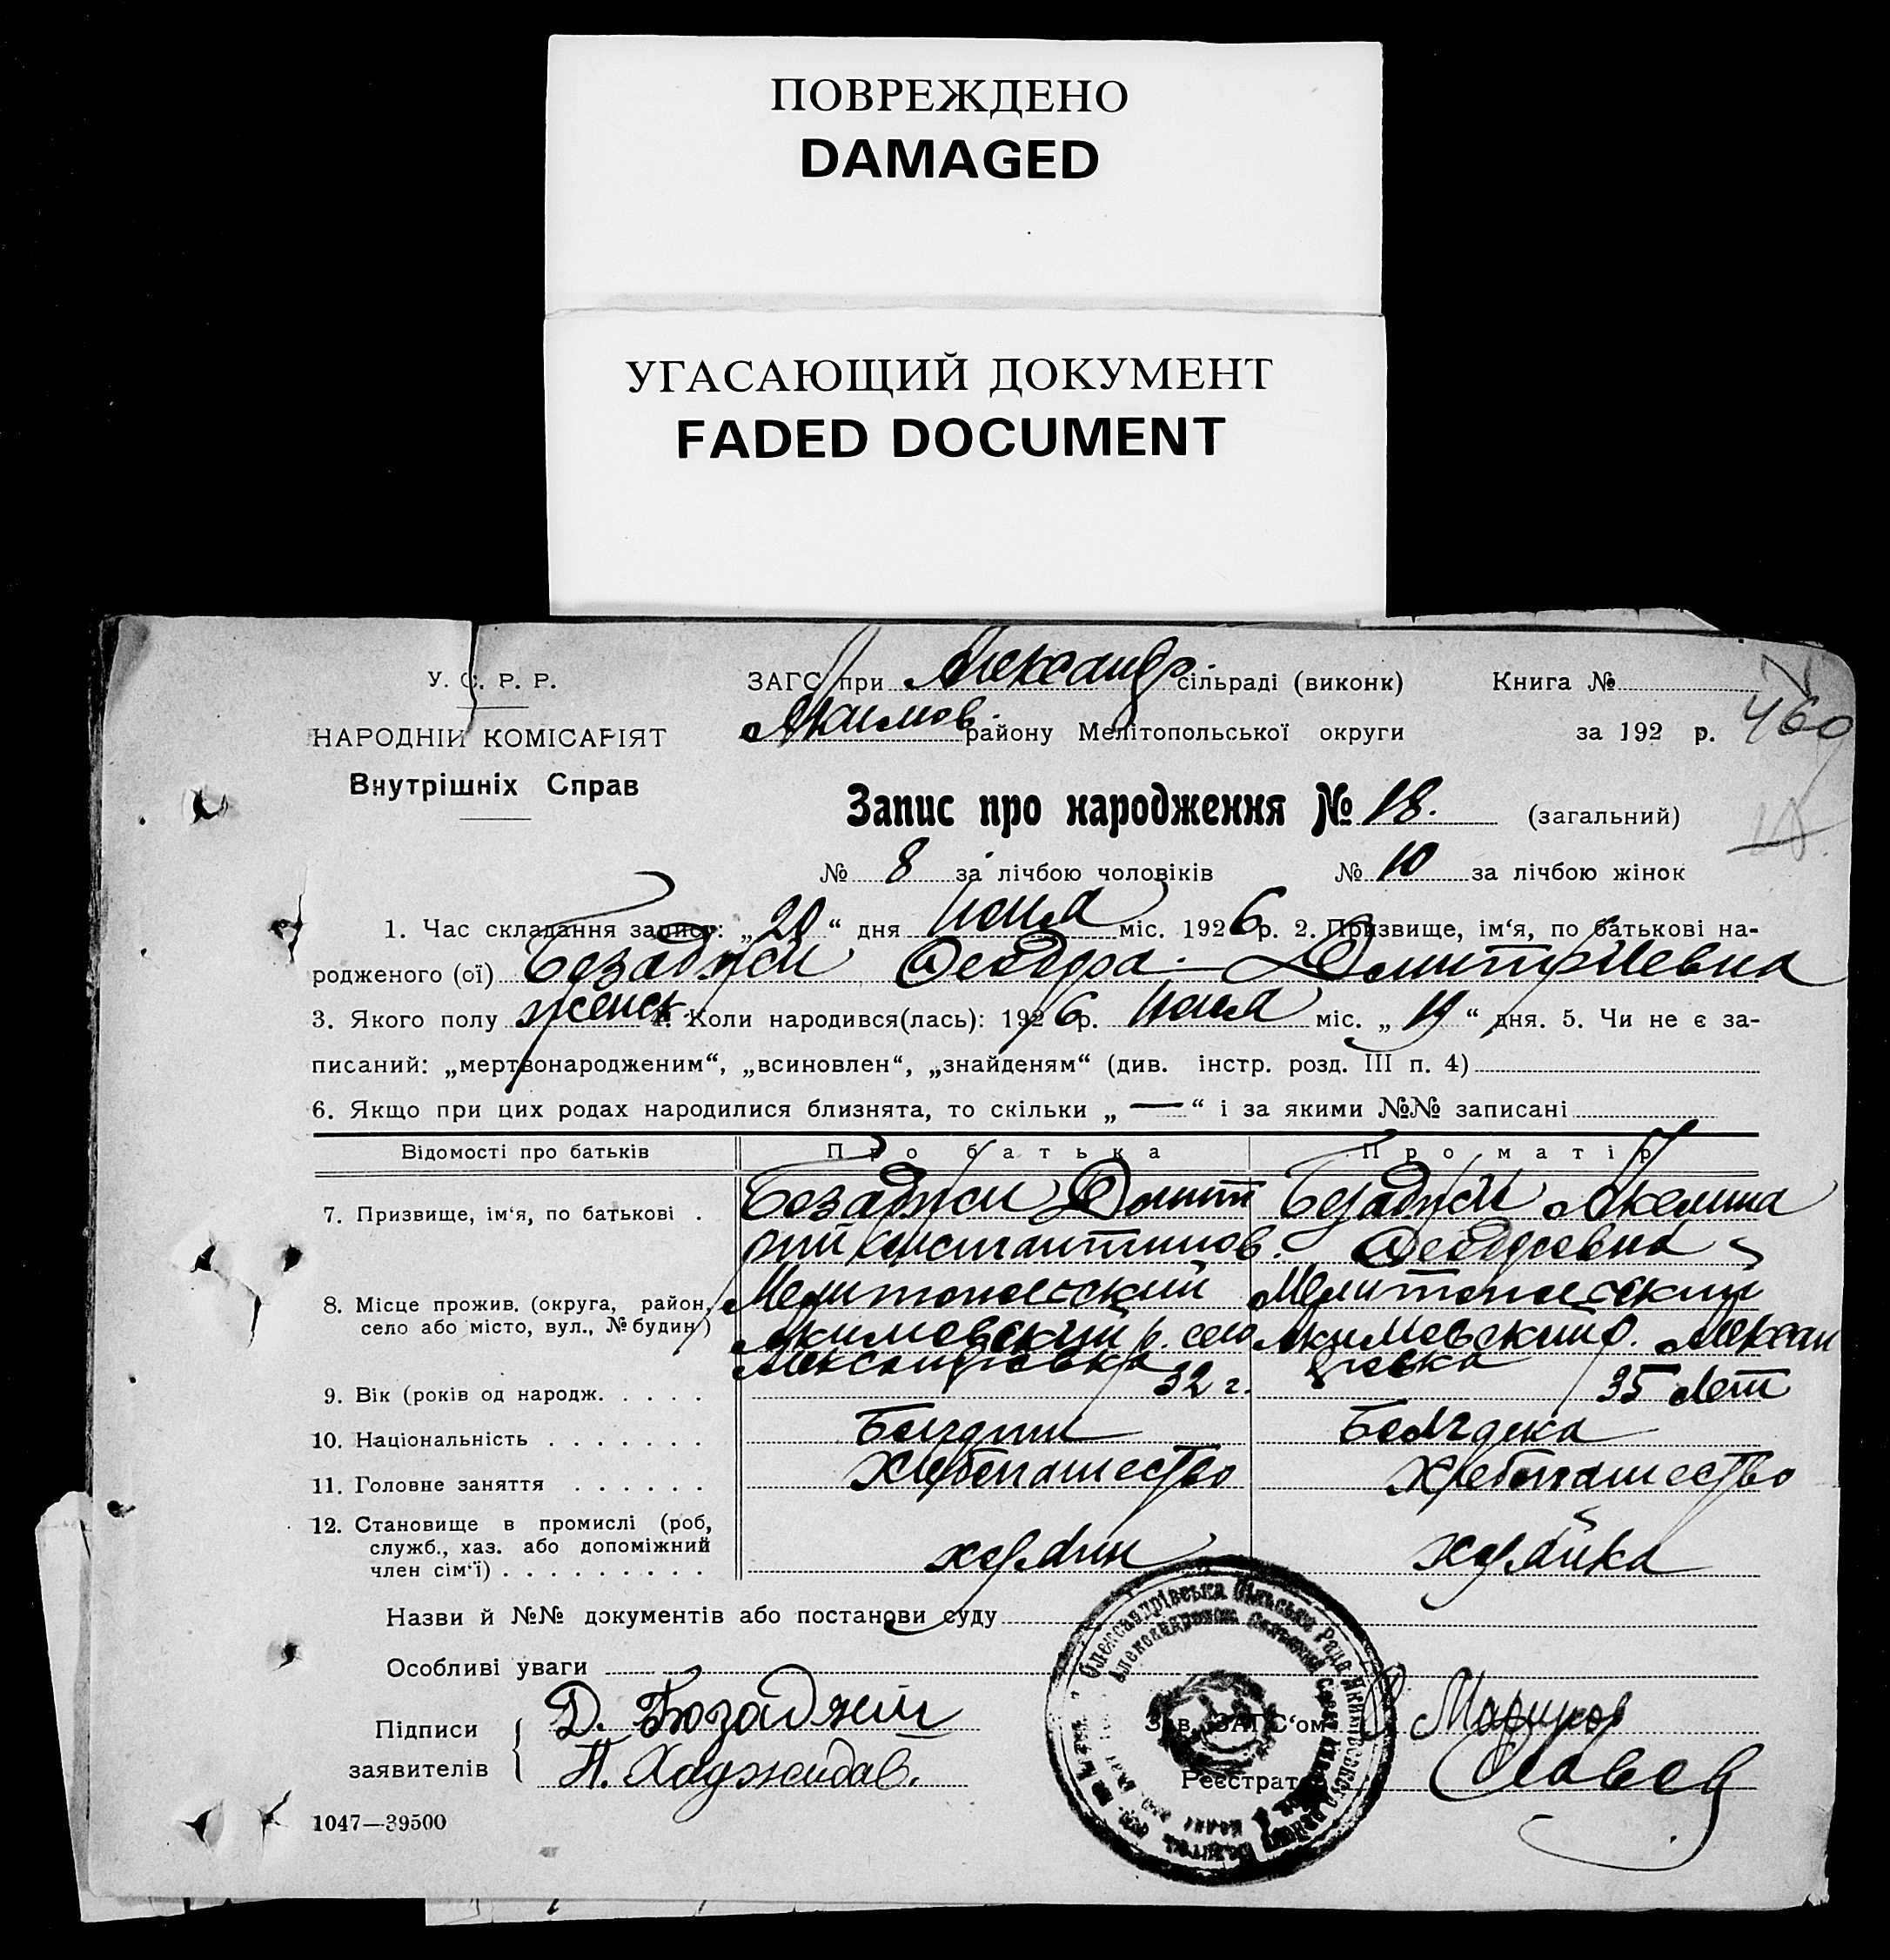 ПОВРЕЖДЕНО
DAMAGED
УГАСАЮЩИЙ ДОКУМЕНТ
FADED DOCUMENT
У. С. Р. Р.
НАРОДНІЙ КОМІСАРІЯТ
Внутрішніх Справ
ЗАГС при Александр. сільраді (виконк) Книга №
Акимов. району Мелітопольської округи за 192 р. 460
Запис про народження № 18. (загальний)
№ 8 за лічбою чоловіків № 10 за лічбою жінок
1. Час складання запису: „20“ дня июня міс. 1926 р. 2. Призвище, ім‘я, по батькові на-
родженого (ої) Бозаджи Феодора Дмитриевна
3. Якого полу женск. 4. Коли народився(лась): 1926 р. июня міс. „19“ дня. 5. Чи не є за-
писаний: „мертвонародженим“, „всиновлен“, „знайденям“ (див. інстр. розд. III п. 4)
6. Якщо при цих родах народилися близнята, то скільки „—“ і за якими №№ записані
Відомості про батьків Про батька Про матір
7. Призвище, ім‘я, по батькові . Бозаджи Дмит Бозаджи Акелина
рий Константинов. Феодоровна
8. Місце прожив. (округа, район, село або місто, вул., № будин.) Мелитопольский Мелитопольский
Акимовский р. село Акимовский р. Алексан
Александровка дровка
9. Вік (років од народж. . . . . 32 г. 35 лет
10. Національність . . . . . . . Болгарин Болгарка
11. Головне заняття . . . . . . Хлебопашество Хлебопашество
12. Становище в промислі (роб,
служб., хаз. або допоміжний
член сім‘ї) . . . . . . . . . хозяин хозяйка
Назви й №№ документів або постанови суду
Особливі уваги
Підписи заявителів Д. Бозаджий
П. Хаджидав.
Зав. ЗАГС‘ом
Реєстрат
Олександрівська Сільська Рада Якимівського району
1047—39500